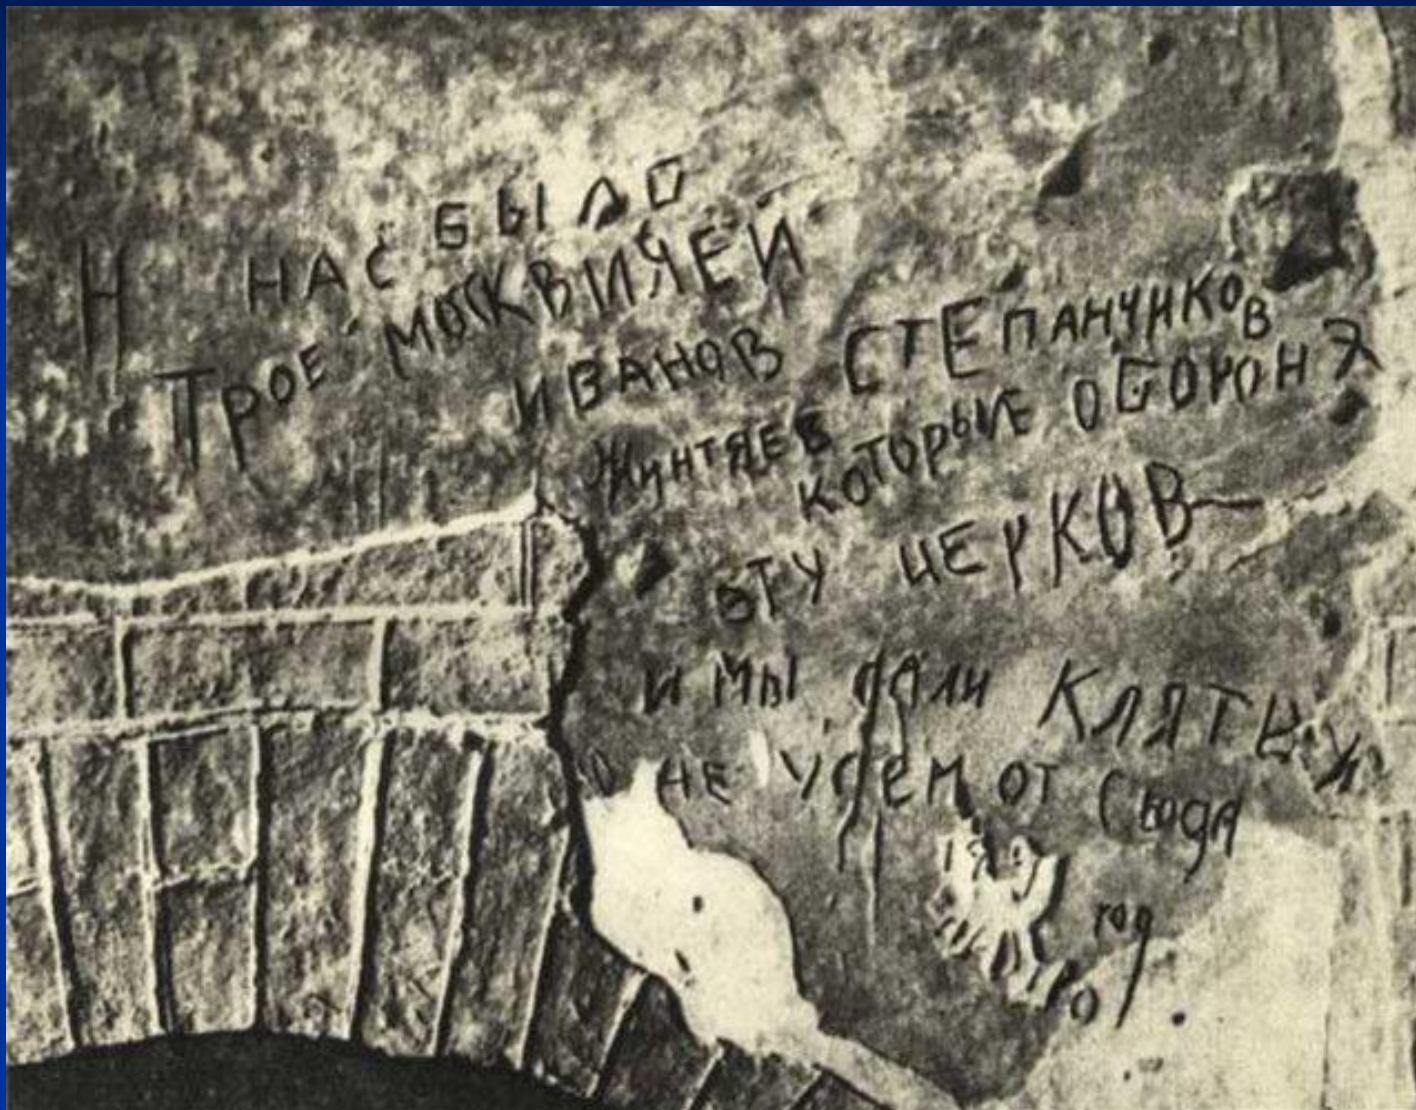 Н НАС БЫЛО
ТРОЕ МОСКВИЧЕЙ
ИВАНОВ СТЕПАНЧИКОВ
ЖУНТЯЕВ
КОТОРЫЕ ОБОРОНЯ
ЭТУ ЦЕРКОВ
И МЫ ДАЛИ КЛЯТВУ
НЕ УЙДЕМ ОТ СЮДА
год